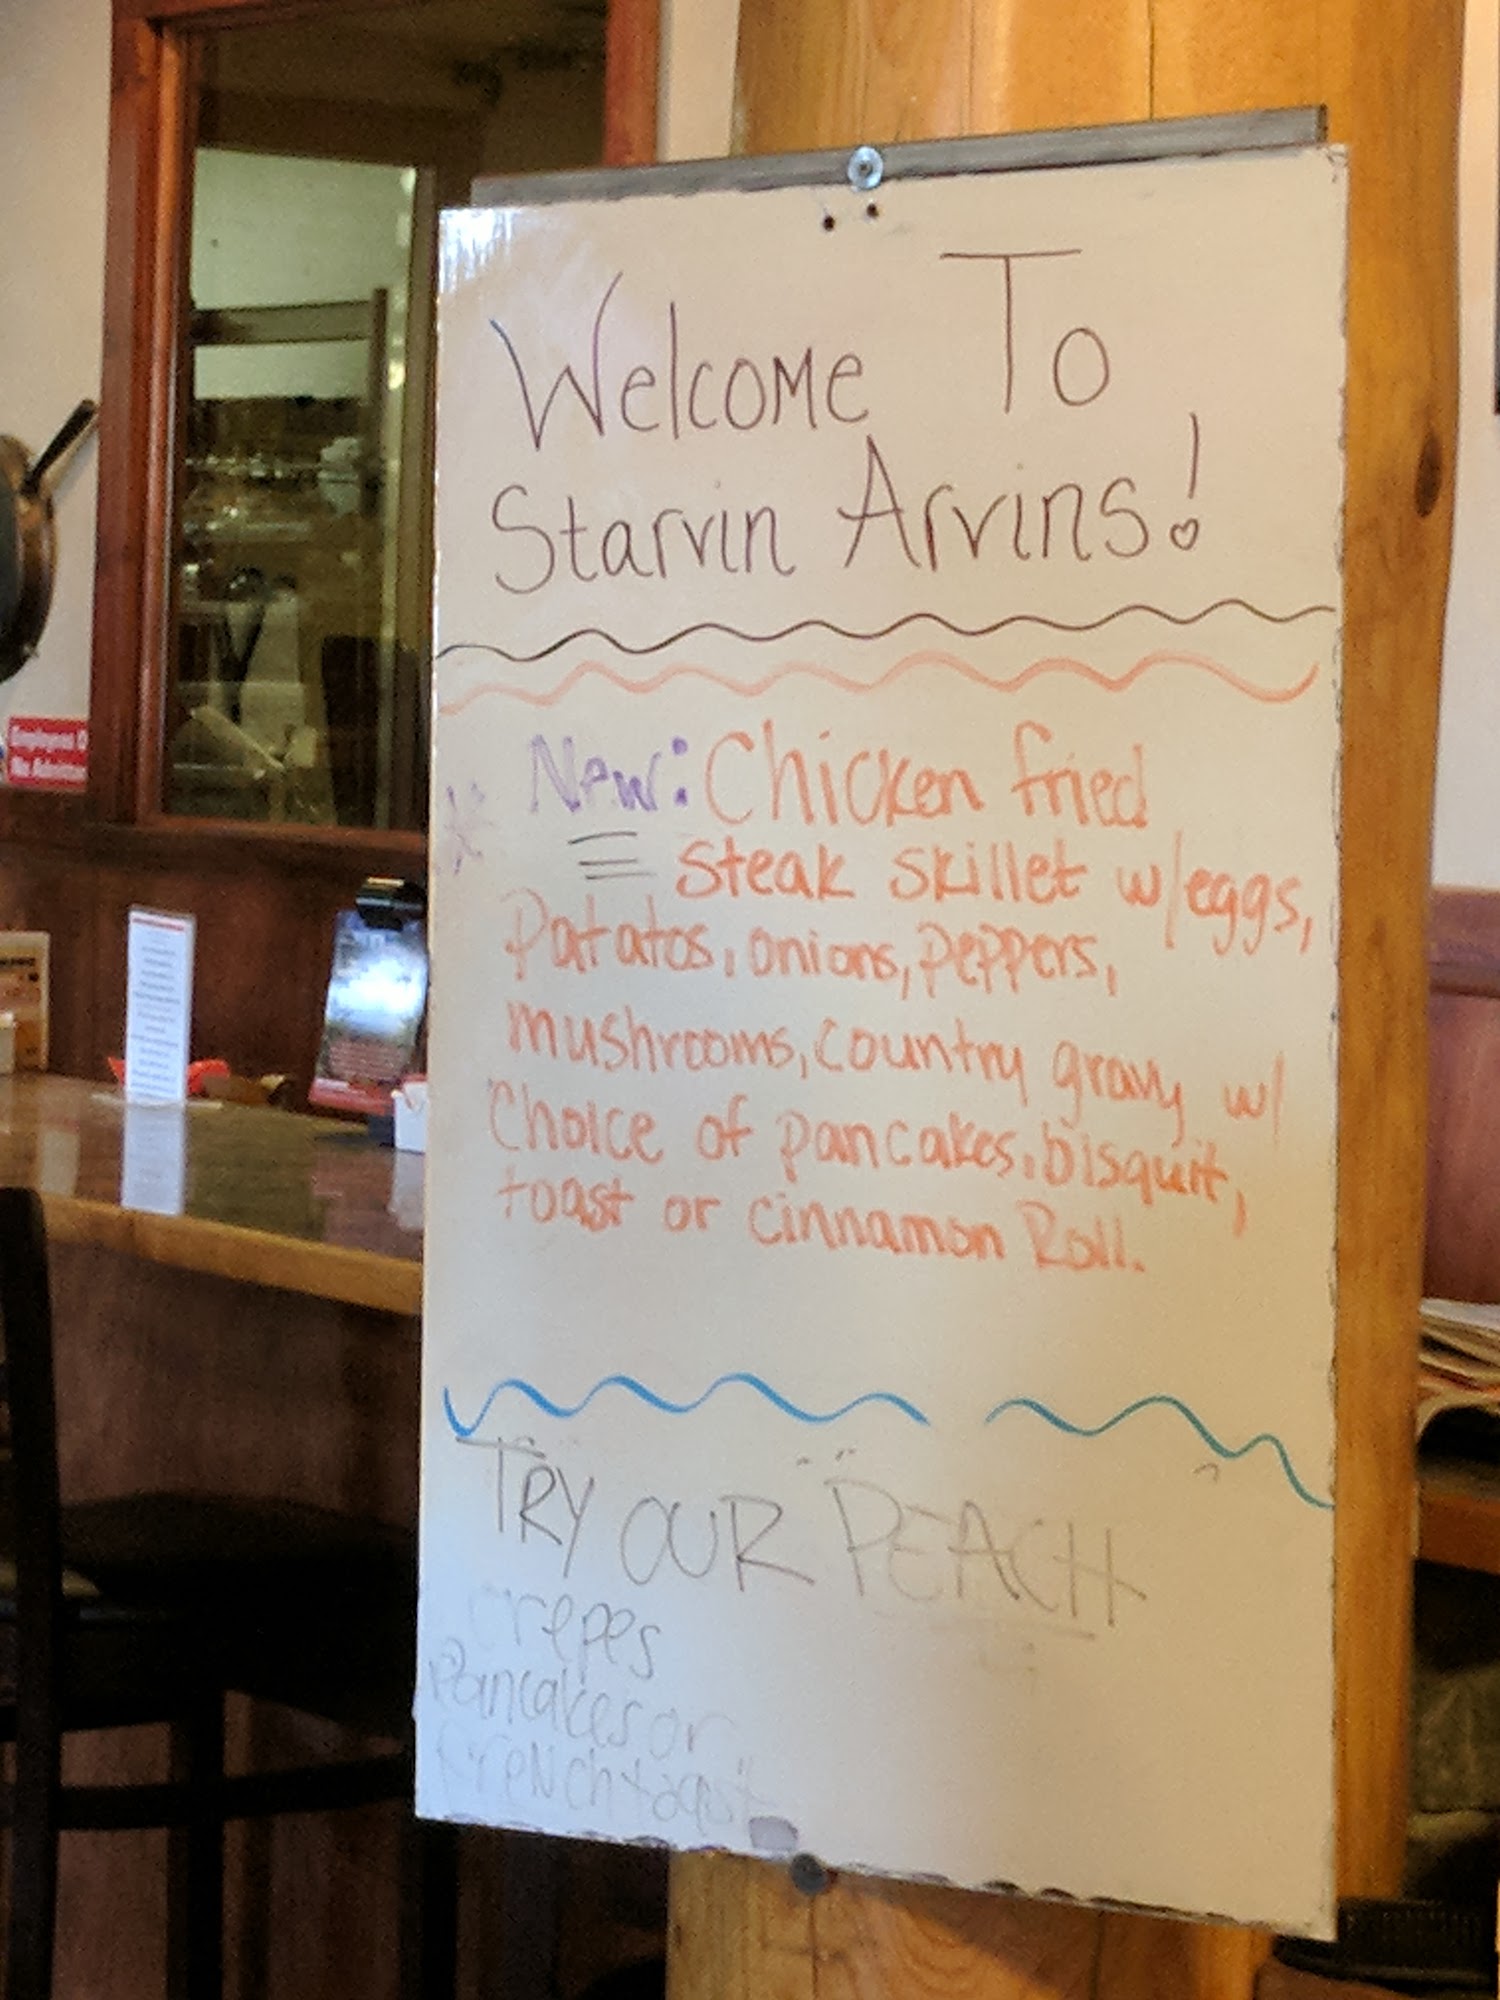 Welcome To
Starvin Arvins!
New: Chicken fried
steak skillet w/eggs,
Patatos, onions, peppers,
mushrooms, country gravy w/
Choice of pancakes, bisquit,
toast or cinnamon Roll.
TRY OUR PEACH
crepes
Pancakes or
frenchtoast